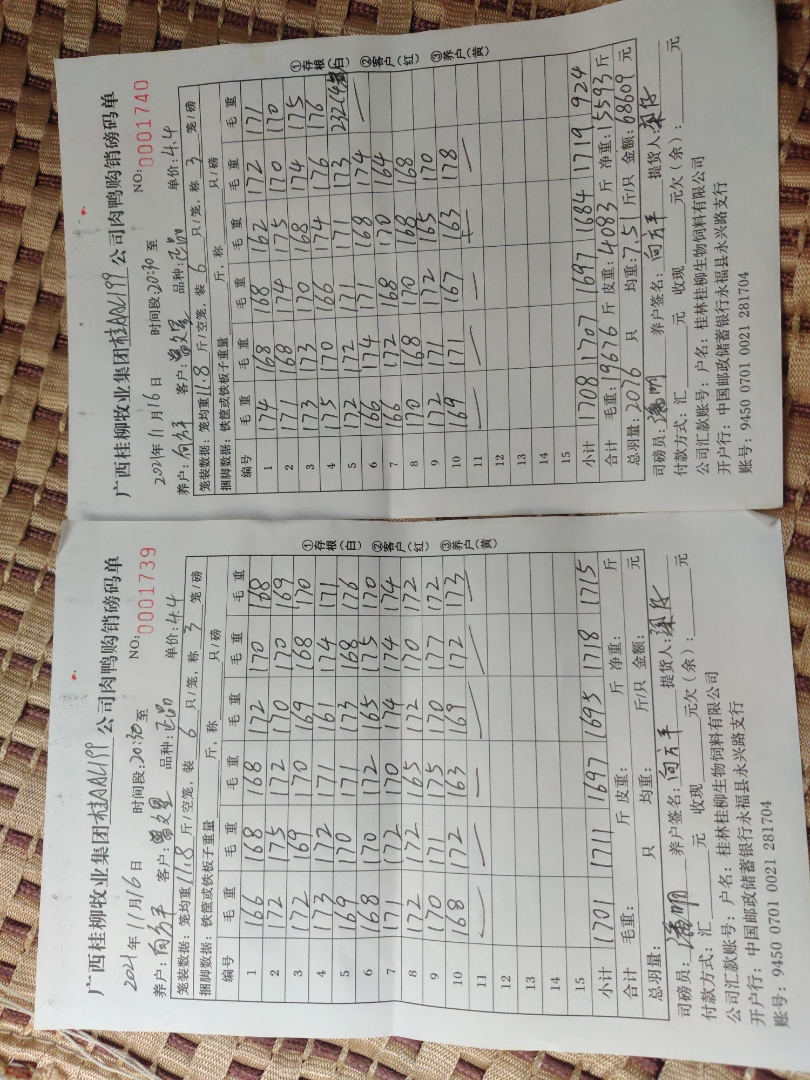 广西桂柳牧业集团桂AAL199公司肉鸭购销磅码单
NO: 0001739
2021年11月16日 时间段:20:30至
养户:向方平 客户: 品种:正品 单价:4.4
笼装数据: 笼均重11.8斤/空笼, 装6只/笼, 称3笼/磅
捆脚数据: 铁筐或铁板子重量 斤, 称 只/磅
编号 毛重 毛重 毛重 毛重 毛重 毛重
1 166 168 168 172 170 168
2 172 175 172 170 170 169
3 172 169 170 169 168 170
4 173 172 171 161 174 171
5 169 170 171 173 168 176
6 168 170 172 165 175 170
7 171 172 170 174 174 174
8 172 172 165 172 170 172
9 170 171 175 170 177 172
10 168 172 163 169 172 173
11
12
13
14
15
小计 1701 1711 1697 1695 1718 1715
合计 毛重: 斤 皮重: 斤 净重: 斤
总羽量: 只 均重: 斤/只 金额: 元
司磅员: 养户签名:向方平 提货人:
付款方式: 汇 元 收现 元欠(余): 元
公司汇款账号: 户名: 桂林桂柳生物饲料有限公司
开户行: 中国邮政储蓄银行永福县永兴路支行
账号: 9450 0701 0021 281704
①存根(白) ②客户(红) ③养户(黄)
广西桂柳牧业集团桂AAL199公司肉鸭购销磅码单
NO: 0001740
2021年11月16日 时间段:20:30至
养户:向方平 客户: 品种:正品 单价:4.4
笼装数据: 笼均重11.8斤/空笼, 装6只/笼, 称3笼/磅
捆脚数据: 铁筐或铁板子重量 斤, 称 只/磅
编号 毛重 毛重 毛重 毛重 毛重 毛重
1 174 168 168 162 172 171
2 171 168 174 175 170 170
3 173 173 170 168 174 175
4 175 170 166 174 176 176
5 172 172 171 171 173 232(4笼)
6 166 174 171 168 174
7 166 172 168 170 164
8 170 168 170 168 168
9 172 171 172 165 170
10 169 171 167 163 178
11
12
13
14
15
小计 1708 1707 1697 1684 1719 924
合计 毛重:19676斤 皮重:4083斤 净重:15593斤
总羽量:2076只 均重:7.51斤/只 金额:68609元
司磅员: 养户签名:向方平 提货人:
付款方式: 汇 元 收现 元欠(余): 元
公司汇款账号: 户名: 桂林桂柳生物饲料有限公司
开户行: 中国邮政储蓄银行永福县永兴路支行
账号: 9450 0701 0021 281704
①存根(白) ②客户(红) ③养户(黄)